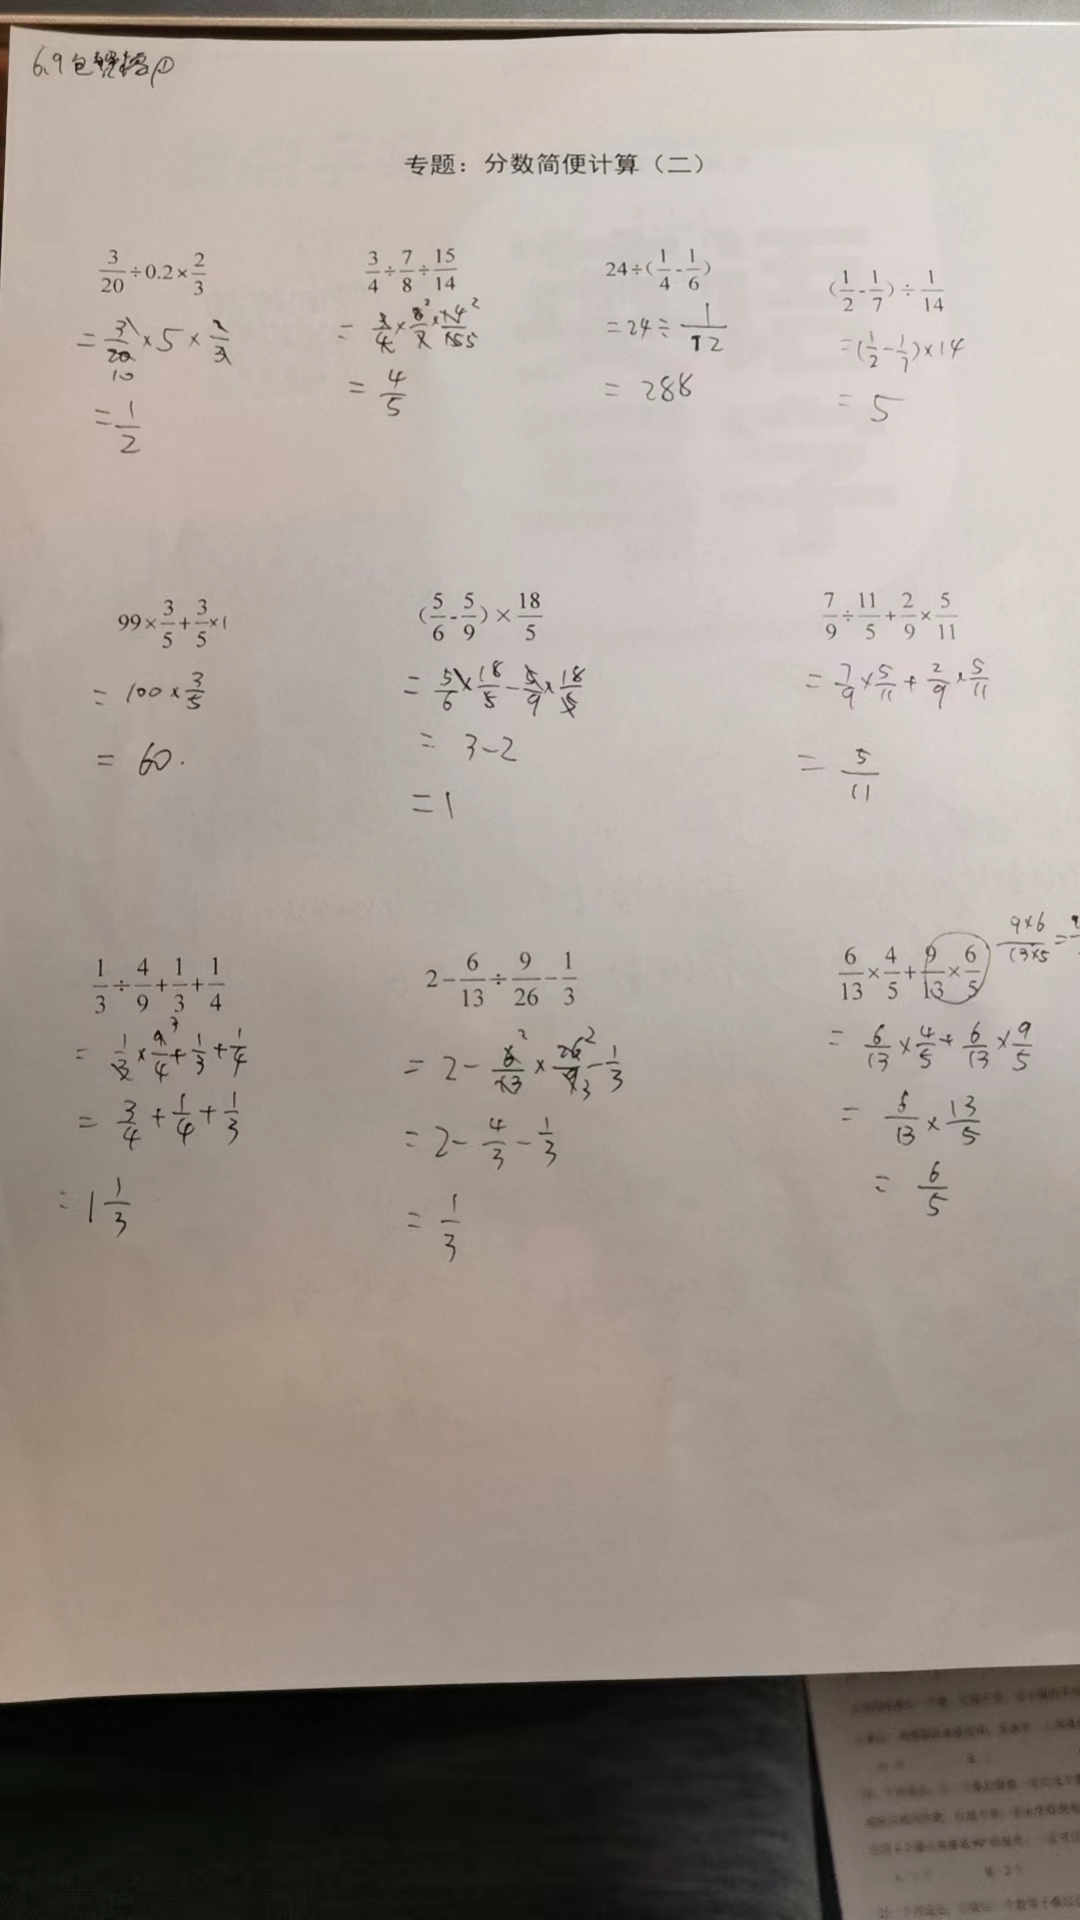 6.9
专题：分数简便计算（二）
3/20÷0.2×2/3
=3/20×5×2/3
10
=1/2
3/4÷7/8÷15/14
=3/4×8/7×14/15
=4/5
24÷(1/4-1/6)
=24÷1/12
=288
(1/2-1/7)÷1/14
=(1/2-1/7)×14
=5
99×3/5+3/5×1
=100×3/5
=60.
(5/6-5/9)×18/5
=5/6×18/5-5/9×18/5
=3-2
=1
7/9÷11/5+2/9×5/11
=7/9×5/11+2/9×5/11
=5/11
1/3÷4/9+1/3+1/4
=1/3×9/4+1/3+1/4
=3/4+1/4+1/3
=1 1/3
2-6/13÷9/26-1/3
=2-6/13×26/9-1/3
=2-4/3-1/3
=1/3
6/13×4/5+9/13×6/5
9×6/13×5=
=6/13×4/5+6/13×9/5
=6/13×13/5
=6/5